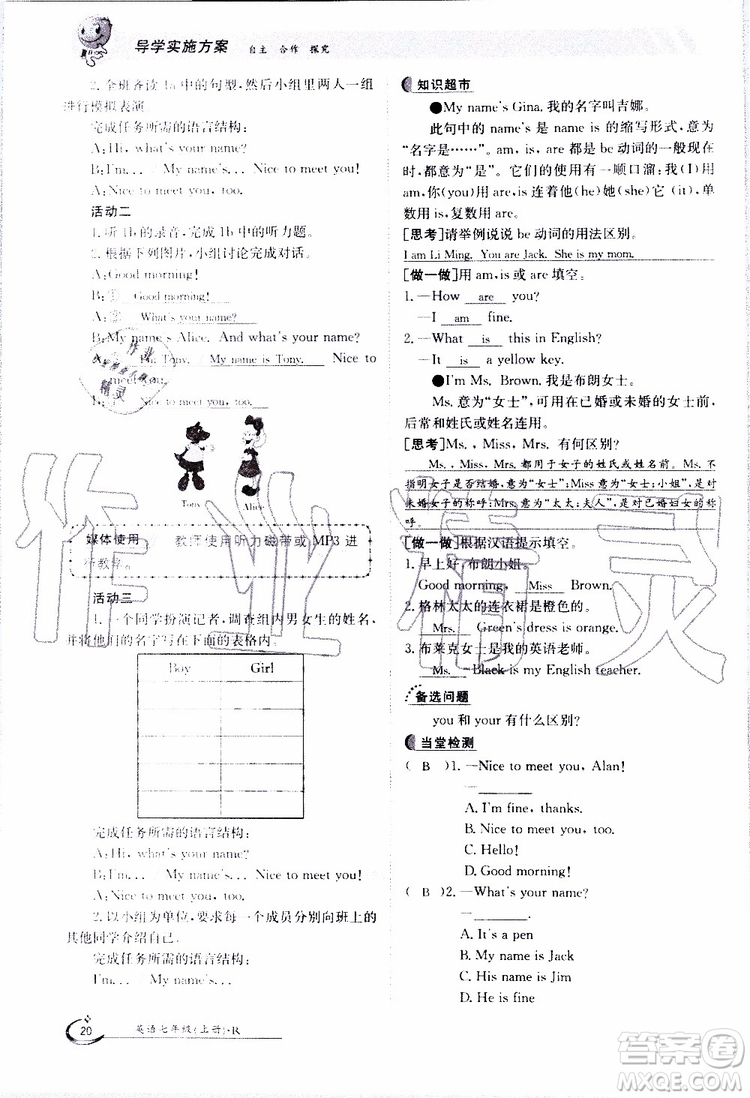 导学实施方案 自主 合作 探究
2. 全班齐读 1a 中的句型,然后小组里两人一组
进行模拟表演
完成任务所需的语言结构:
A: Hi, what's your name?
B: I'm… My name's… Nice to meet you!
A: Nice to meet you, too.
活动二
1. 听 的录音,完成 1b 中的听力题。
2. 根据下列图片,小组讨论完成对话。
A: Good morning!
B: ① Good morning!
A: ② What's your name?
B: My name's Alice. And what's your name?
A: ③ I'm Tony. My name is Tony. Nice to
meet you.
B: ④ Nice to meet you, too.
Tony Alice
媒体使用 教师使用听力磁带或 MP3 进
行教学。
活动三
1. 一个同学扮演记者,调查组内男女生的姓名,
并将他们的名字写在下面的表格内。
Boy Girl
完成任务所需的语言结构:
A: Hi, what's your name?
B: I'm… My name's… Nice to meet you!
A: Nice to meet you, too.
2. 以小组为单位,要求每一个成员分别向班上的
其他同学介绍自己。
完成任务所需的语言结构:
I'm… My name's…
20 英语七年级(上册)·R
知识超市
●My name's Gina. 我的名字叫吉娜。
此句中的 name's 是 name is 的缩写形式,意为
“名字是……”。am, is, are 都是 be 动词的一般现在
时,都意为“是”。它们的使用有一顺口溜:我(I)用
am,你(you)用are,is连着他(he)她(she)它(it),单
数用 is,复数用 are。
[思考]请举例说说 be 动词的用法区别。
I am Li Ming. You are Jack. She is my mom.
[做一做]用 am, is 或 are 填空。
1. —How are you?
—I am fine.
2. —What is this in English?
—It is a yellow key.
●I'm Ms. Brown. 我是布朗女士。
Ms. 意为“女士”,可用在已婚或未婚的女士前,
后常和姓氏或姓名连用。
[思考]Ms., Miss, Mrs. 有何区别?
Ms.、Miss、Mrs. 都用于女子的姓氏或姓名前。Ms. 不
指明女子是否结婚,意为“女士”;Miss 意为“女士;小姐”,是对
未婚女子的称呼;Mrs. 意为“太太;夫人”,是对已婚妇女的称
呼。
[做一做]根据汉语提示填空。
1. 早上好,布朗小姐。
Good morning, Miss Brown.
2. 格林太太的连衣裙是橙色的。
Mrs. Green's dress is orange.
3. 布莱克女士是我的英语老师。
Ms. Black is my English teacher.
备选问题
you 和 your 有什么区别?
当堂检测
( B )1. —Nice to meet you, Alan!
—
A. I'm fine, thanks.
B. Nice to meet you, too.
C. Hello!
D. Good morning!
( B )2. —What's your name?
— .
A. It's a pen
B. My name is Jack
C. His name is Jim
D. He is fine
作业精灵
答案卷
MXQE.COM